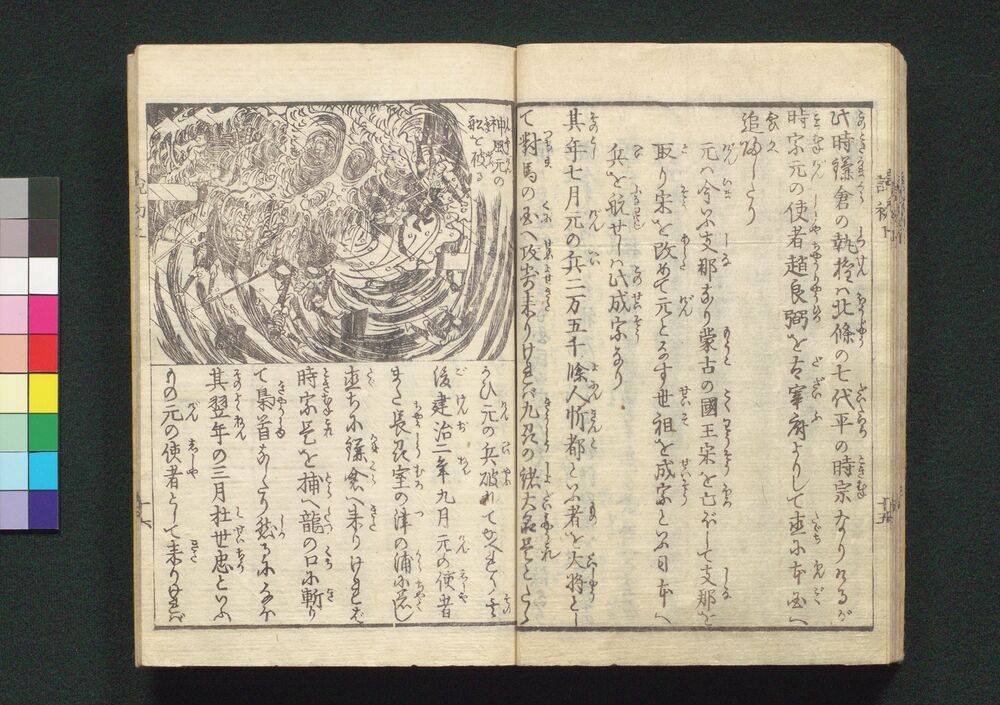 此時鎌倉の執権ハ北條の七代平の時宗なりけるが
時宗元の使者趙良弼を太宰府よりして直に本国へ
追かへしたり
元ハ今いふ支那なり蒙古の國王宋を亡ぼして支那を
取り宋を改めて元となす世祖を成宗といふ日本へ
兵を航せしハ此成宗なり
其年七月元の兵二万五千餘人忻都といふ者を大将とし
て對馬の国へ攻寄来りけれバ九州の諸大名是とたゝ
神風元の
船を破る
かひ元の兵破れてかへりけり
後建治二年九月元の使者
また長州室の津の浦に着し
直ちに鎌倉へ来りけれど
時宗是を捕へ龍の口に斬り
て梟首なしたり然るになほ
其翌年の三月杜世忠といふ
もの元の使者として来りけれバ